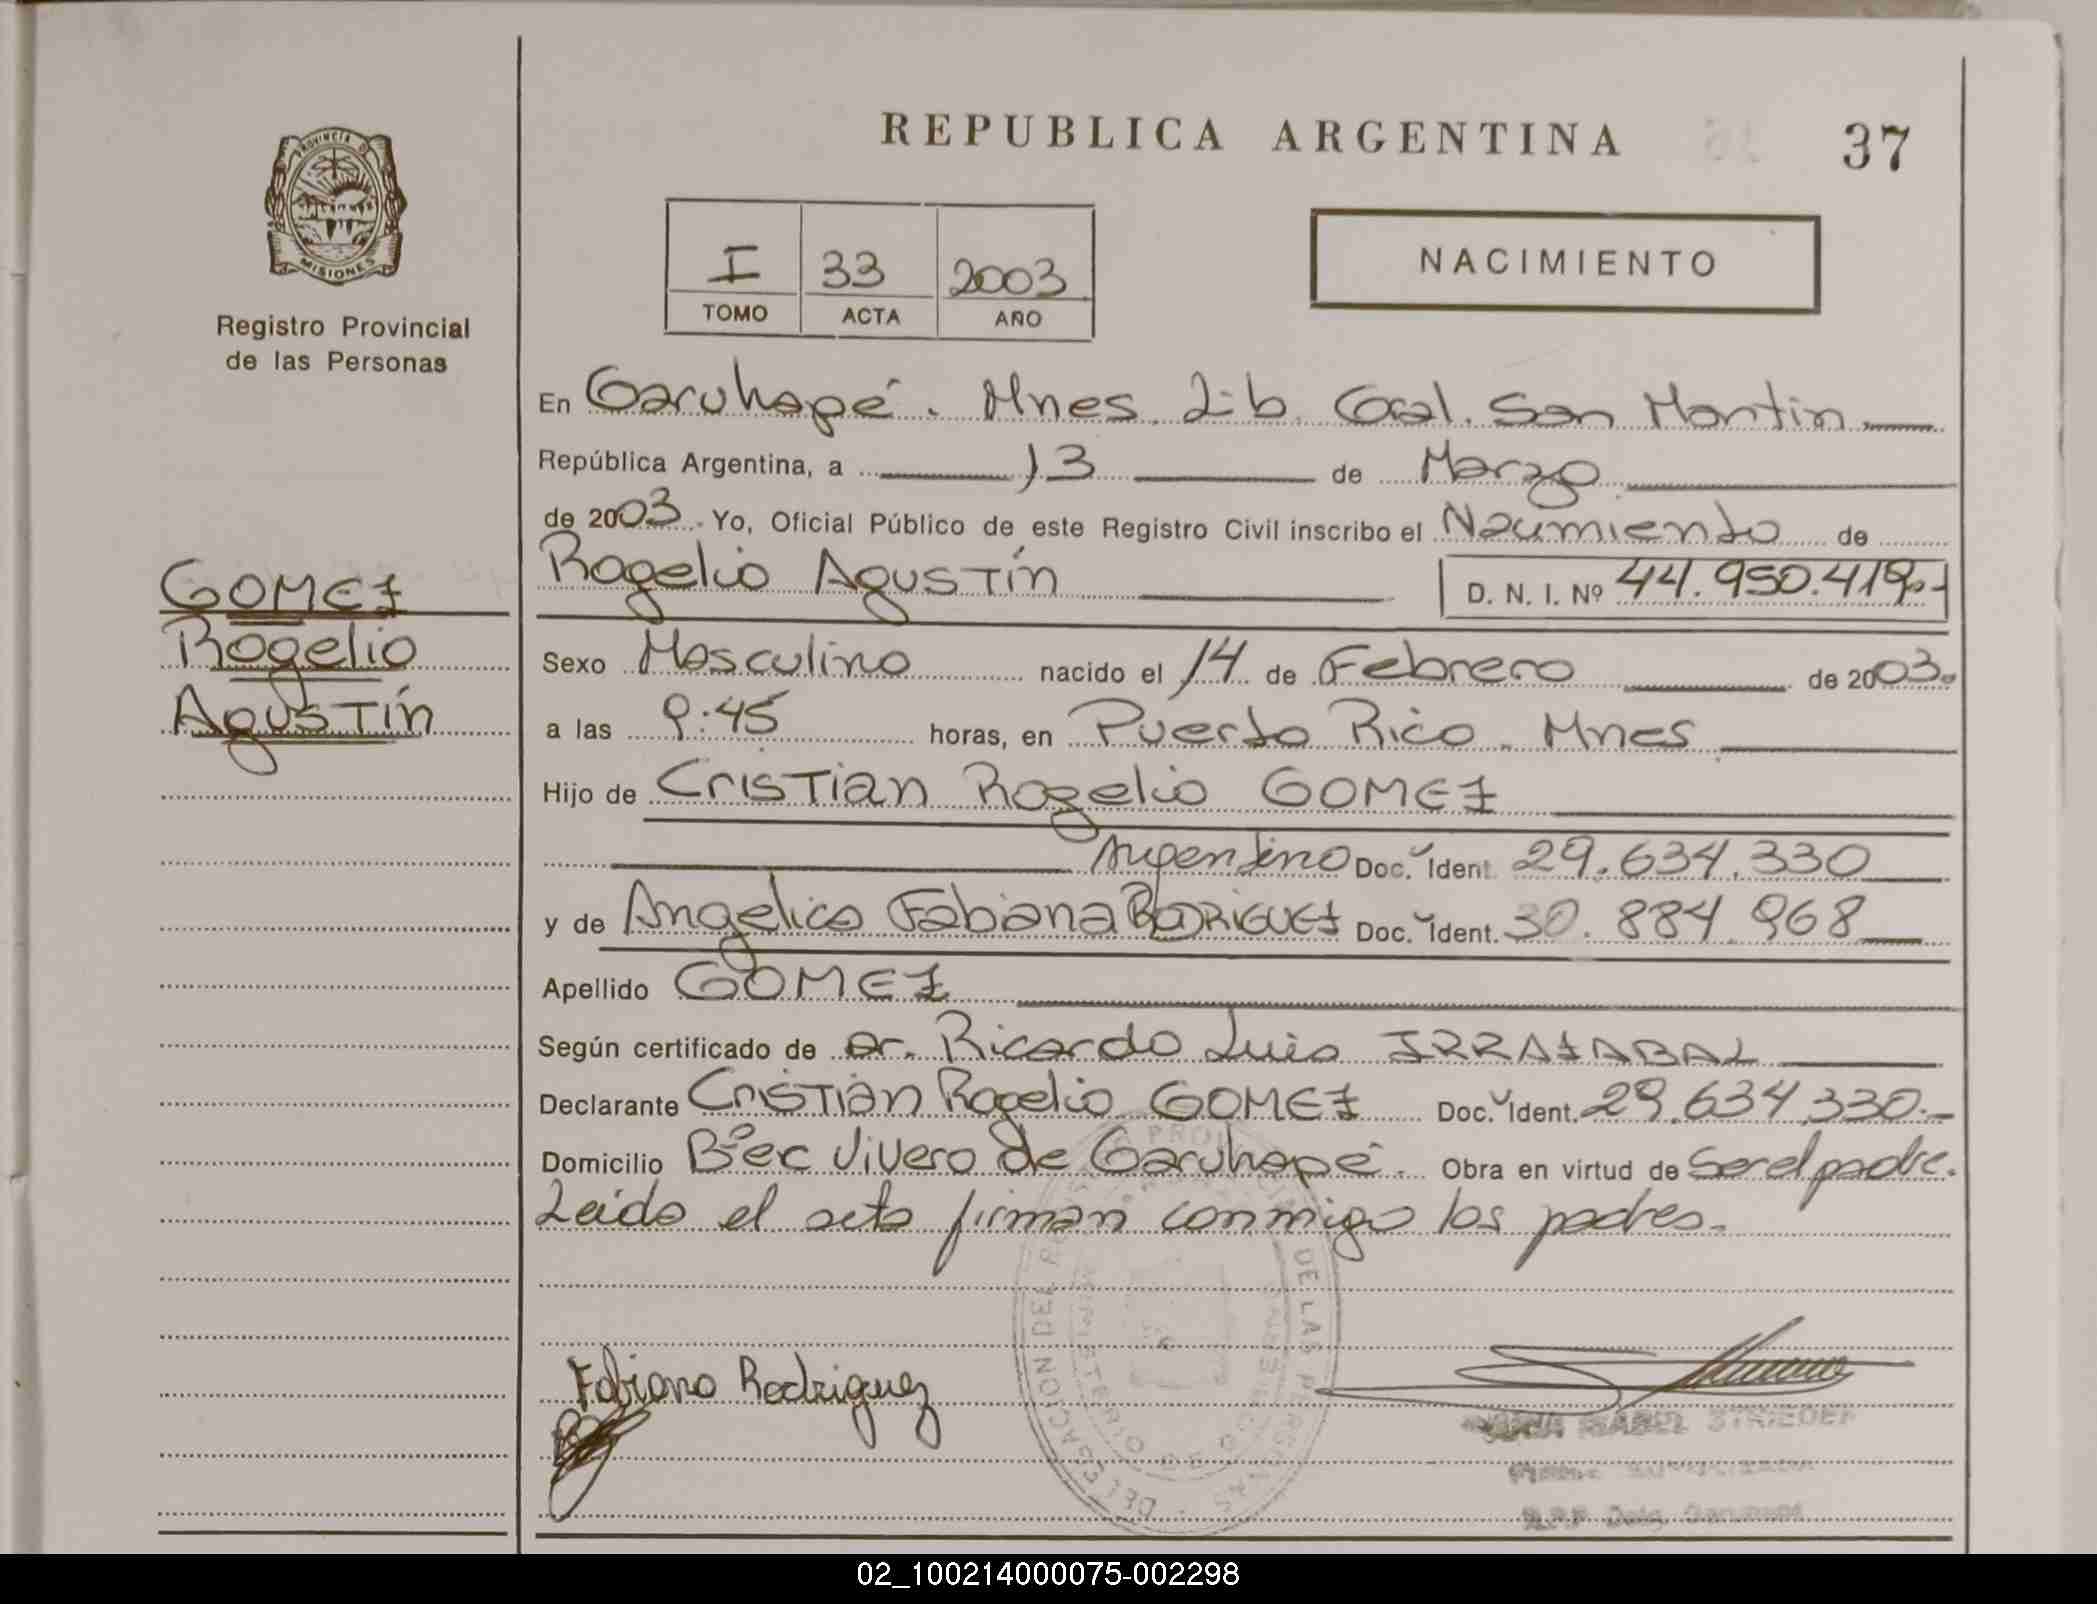 REPUBLICA ARGENTINA
37
PROVINCIA DE
MISIONES
Registro Provincial
de las Personas
I 33 2003
TOMO ACTA AÑO
NACIMIENTO
En Garuhapé. Mnes. Lib. Gral. San Martin
República Argentina, a 13 de Marzo
de 2003. Yo, Oficial Público de este Registro Civil inscribo el Nacimiento de
Rogelio Agustín D. N. I. Nº 44.950.419.-
GOMEZ
Rogelio
Agustín
Sexo Masculino nacido el 14 de Febrero de 2003.
a las 9:45 horas, en Puerto Rico. Mnes
Hijo de Cristian Rogelio GOMEZ
Argentino Doc. Ident. 29.634.330
y de Angelica Fabiana RODRIGUEZ Doc. Ident. 30.884.968
Apellido GOMEZ
Según certificado de Dr. Ricardo Luis IRRAZABAL
Declarante Cristian Rogelio GOMEZ Doc. Ident. 29.634.330.-
Domicilio Bº ex Vivero de Garuhapé. Obra en virtud de Ser el padre.
Leído el acta firman conmigo los padres.
Fabiana Rodriguez
DELEGACION DEL DE LAS PERSONAS
MINISTERIO DE
ISABEL STRIEDER
R.P.P. Deleg. Garuhape
02_100214000075-002298